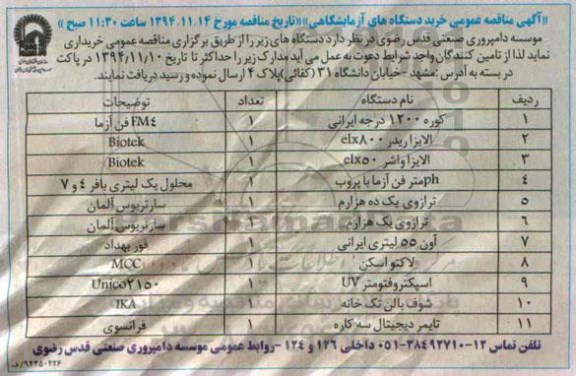 «آگهی مناقصه عمومی خرید دستگاه های آزمایشگاهی»«تاریخ مناقصه مورخ ۱۳۹۴.۱۱.۱۴ ساعت ۱۱:۳۰ صبح»
موسسه دامپروری صنعتی قدس رضوی در نظر دارد دستگاه های زیر را از طریق برگزاری مناقصه عمومی خریداری
نماید لذا از تامین کنندگان واجد شرایط دعوت به عمل می آید مدارک زیر را حداکثر تا تاریخ ۱۳۹۴/۱۱/۱۰ در پاکت
در بسته به آدرس :مشهد -خیابان دانشگاه ۳۱ (کفائی)پلاک ۴ ارسال نموده و رسید دریافت نمایند.
ردیف نام دستگاه تعداد توضیحات
۱ کوره ۱۲۰۰ درجه ایرانی ۱ FM٤ فن آزما
۲ الایزا ریدر elx۸۰۰ ۱ Biotek
۳ الایزا واشر elx۵۰ ۱ Biotek
۴ phمتر فن آزما با پروب ۱ محلول یک لیتری بافر ۴ و ۷
۵ ترازوی یک ده هزارم ۱ سارتریوس آلمان
۶ ترازوی یک هزارم ۱ سارتریوس آلمان
۷ آون ۵۵ لیتری ایرانی ۱ فور بهداد
۸ لاکتو اسکن ۱ MCC
۹ اسپکتروفتومتر UV ۱ Unico۲۱۵۰
۱۰ شوف بالن تک خانه ۱ IKA
۱۱ تایمر دیجیتال سه کاره ۱ فرانسوی
تلفن تماس ۱۲-۳۸۴۹۲۷۱۰-۰۵۱ داخلی ۱۲۶ و ۱۲۴ -روابط عمومی موسسه دامپروری صنعتی قدس رضوی